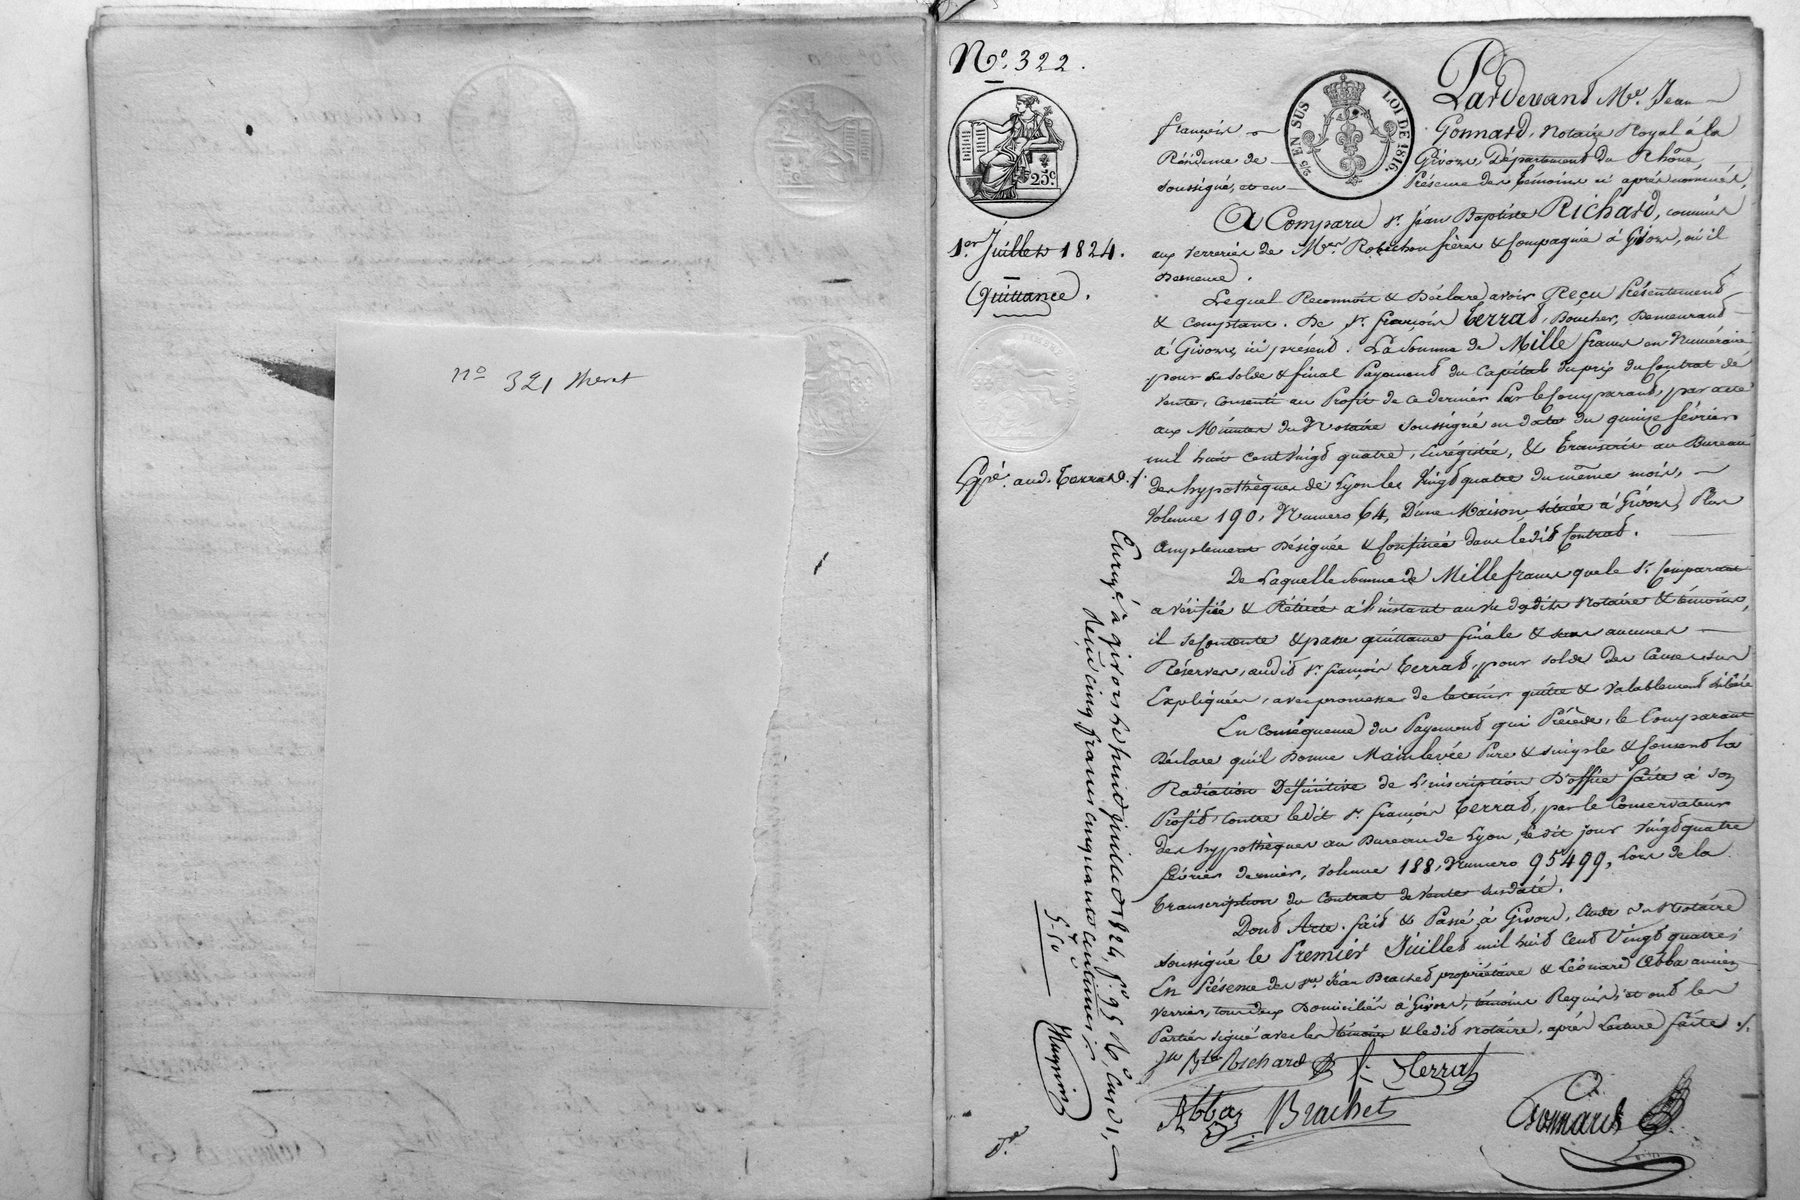 nº 321 Merat
Nº. 322.
25 EN SUS
LOI DE 1816.
25c
1er Juillet 1824.
Quittance.
Expé. aud. Terrat ./.
Pardevant Me. Jean
françois Gonnard, Notaire Royal à la
Résidence de Givors Département du Rhône
soussigné, et en Présence des témoins ci après nommés,
A Comparu Sr. Jean Baptiste Richard, commis
aux verreries de Mrs. Robichon frères & Compagnie à Givors, où il
Demeure.
Lequel Reconnoit & Déclare avoir Reçu Présentement
& comptant. De Sr. françois Terrat, Boucher, Demeurant
à Givors, ici présent. La Somme de Mille francs en Numéraire
pour solde & final Payement du Capital du prix du Contrat de
Vente, Consenti au Profit de ce dernier Par le Comparant, par acte
aux Minutes du Notaire Soussigné en date du quinze février
mil huit cent Vingt quatre, Enrégistré, & Transcrit au Bureau
des hypothèques de Lyon les Vingt quatre du même mois,
Volume 190, Numero 64, D'une Maison située à Givors, Plus
amplement Désignée & Confinée dans ledit Contrat.
De Laquelle Somme de Mille francs que le Sr. Comparant
a vérifiée & Retirée à l'instant au vu desdits Notaire & témoins,
il se Contente & passe quittance finale & sans aucunes
Réserves, audit Sr. françois Terrat, pour solde des Causes sus
Expliquées, avec promesse de le tenir quitte & valablement libéré
En Conséquence du Payement qui Précède, le Comparant
Déclare qu'il Donne Mainlevée Pure & simple & Consent la
Radiation Définitive de L'inscription D'office faite à son
Profit, contre ledit Sr. françois Terrat, par le Conservateur
des hypothèques au Bureau de Lyon, ledit jour Vingt quatre
février dernier, Volume 188, Numero 95499, Lors de la
Transcription du Contrat de Vente susdaté.
Dont Acte. fait & Passé à Givors, Etude du Notaire
soussigné le Premier Juillet mil huit Cent Vingt quatre,
En Présence des Srs. Jean Brachet propriétaire & Léonard Abba ancien
verrier, tous deux Domiciliés à Givors, témoins Requis, et ont les
Parties signé avec les témoins & ledit Notaire, après Lecture faite ./.
Jn Bte Richard
f. Terrat
Abba
Brachet
Gonnard
Enregé. à givors le huit juillet 1824, fo. 95 Vo. Case 1,
Reçu cinq francs cinquante centimes